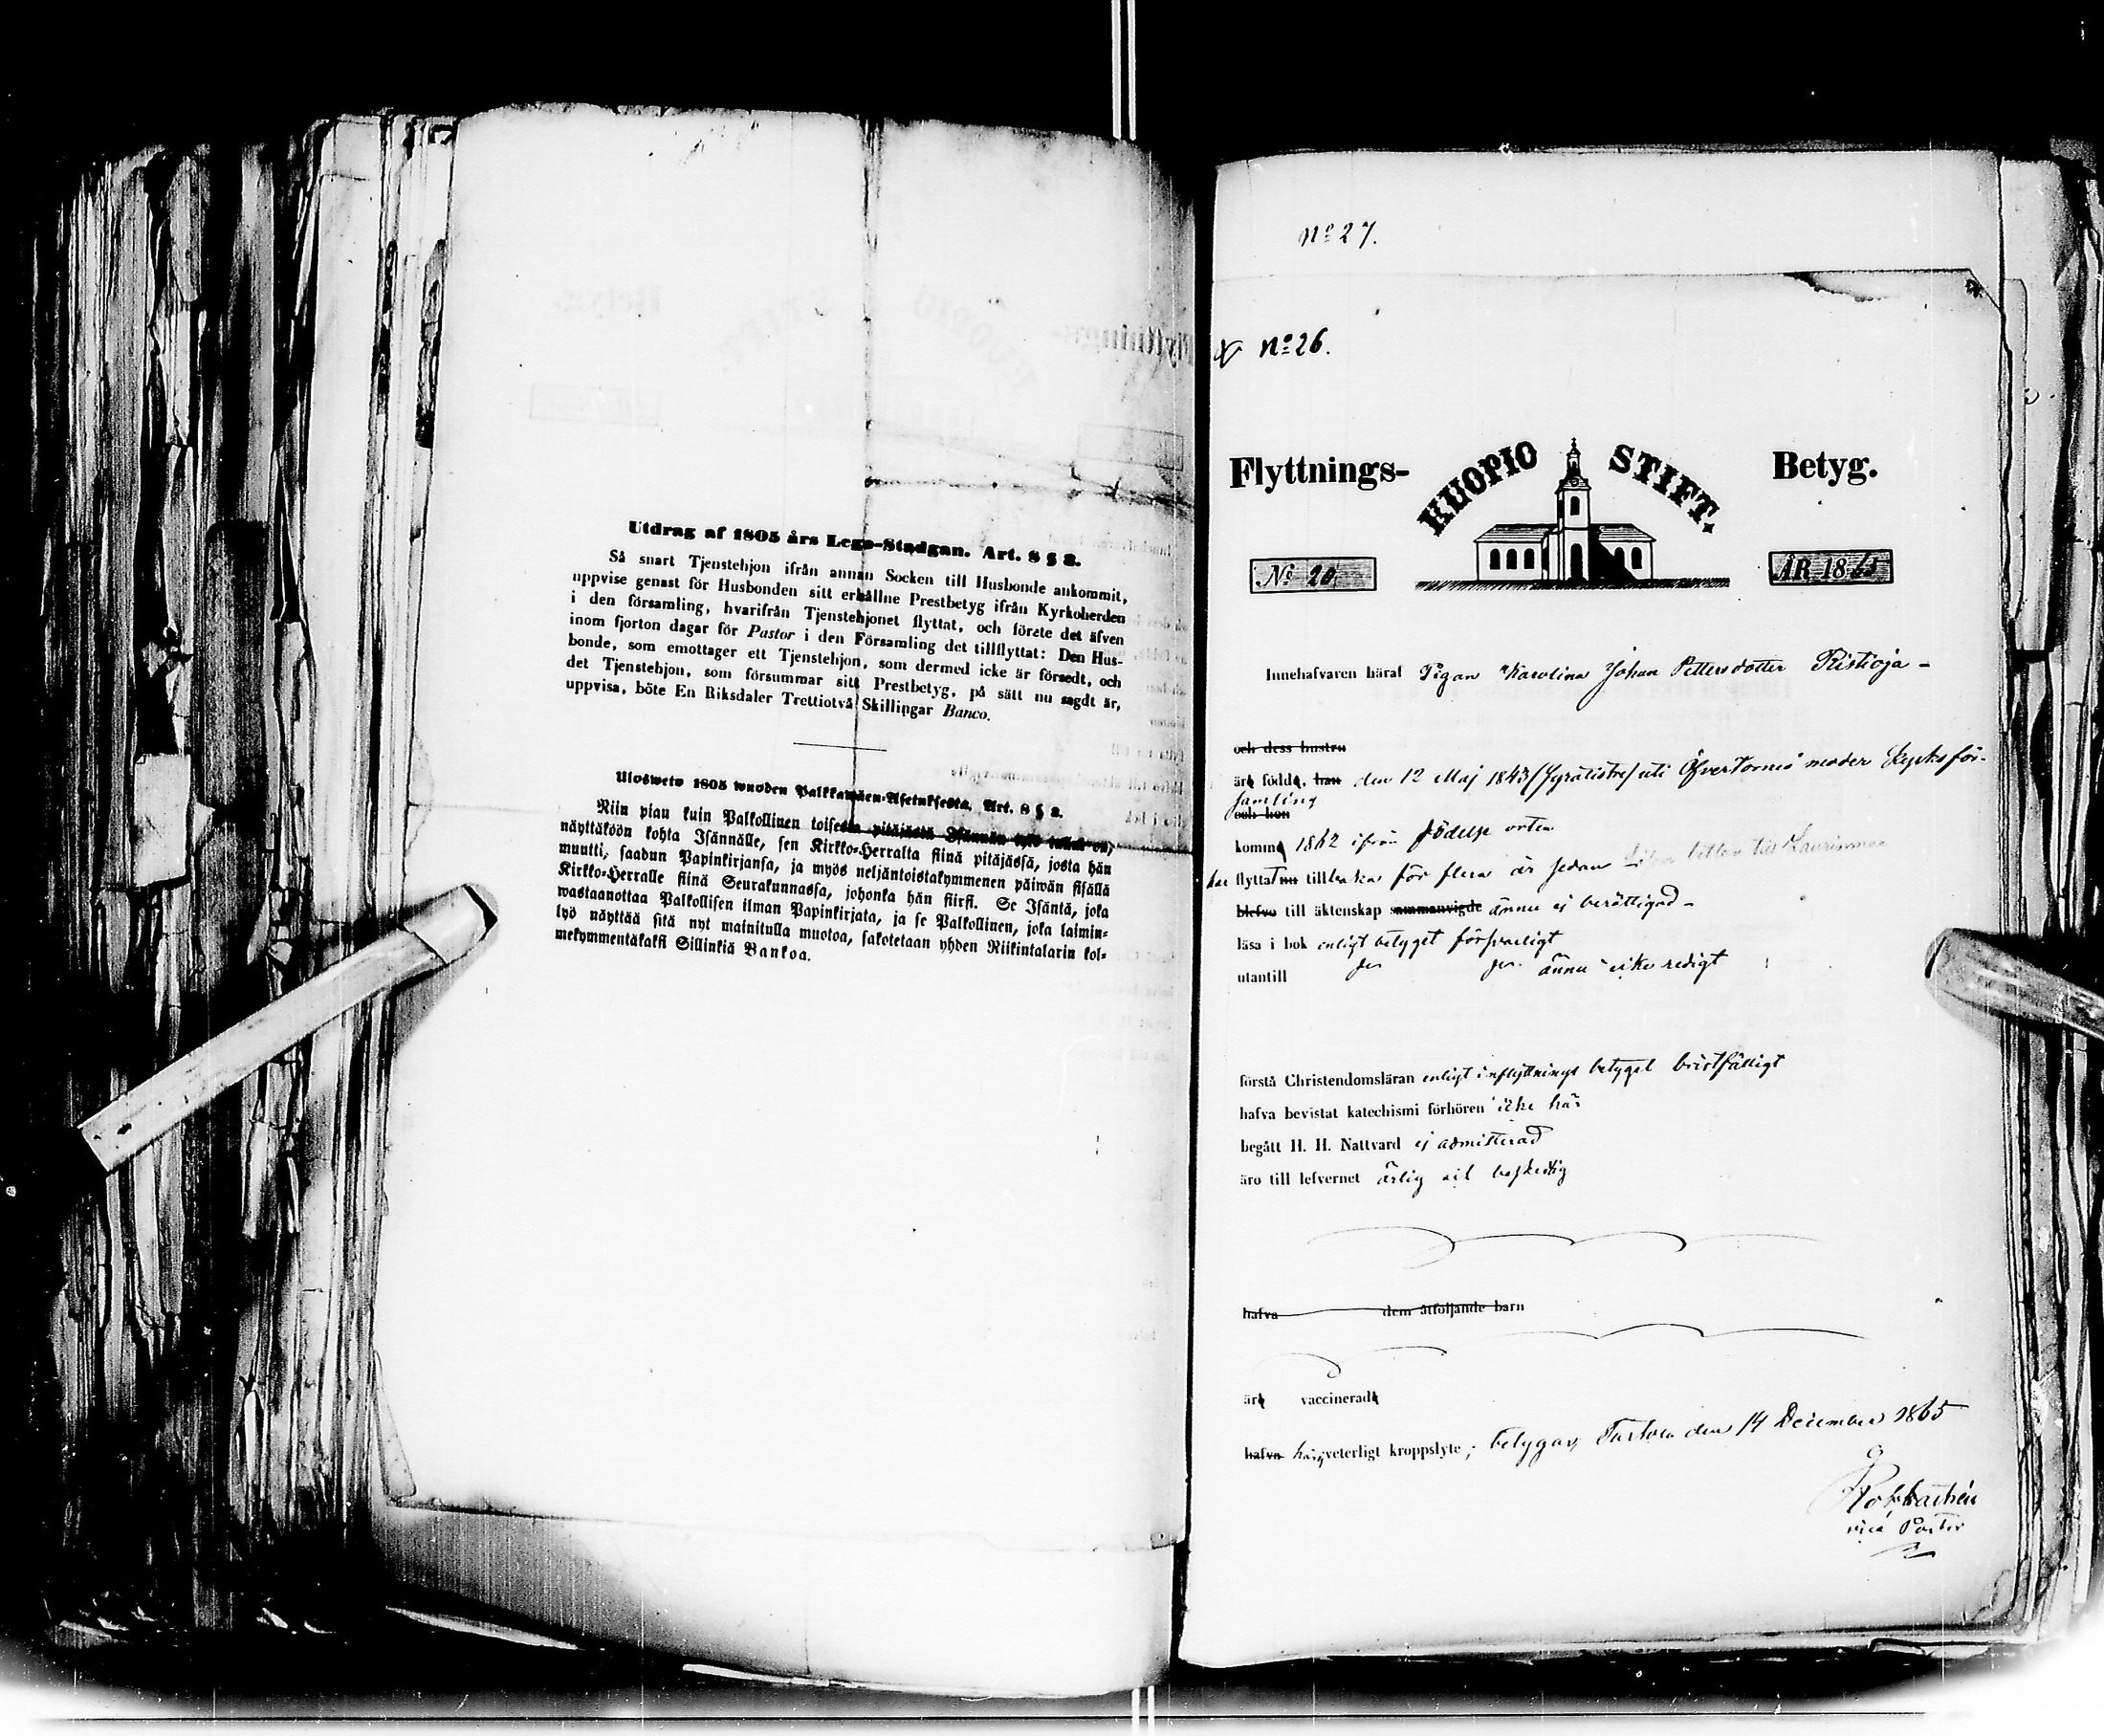 Utdrag af 1805 års Lego-Stadgan. Art. 8 § 2.
Så snart Tjenstehjon ifrån annan Socken till Husbonde ankommit,
uppvise genast för Husbonden sitt erhållne Prestbetyg ifrån Kyrkoherden
i den församling, hvarifrån Tjenstehjonet flyttat, och förete det äfven
inom fjorton dagar för Pastor i den Församling det tillflyttat: Den Hus-
bonde, som emottager ett Tjenstehjon, som dermed icke är försedt, och
det Tjenstehjon, som försummar sitt Prestbetyg, på sätt nu sagdt är,
uppvisa, böte En Riksdaler Trettiotvå Skillingar Banco.
Ulosweto 1805 wuoden Palkkawäen-Asetuksesta. Art. 8 § 2.
Niin pian kuin Palkollinen toisesta pitäjästä Isännän tykö tullut on,
näyttäköön kohta Isännälle, sen Kirkko-Herralta siinä pitäjässä, josta hän
muutti, saadun Papinkirjansa, ja myös neljäntoistakymmenen päiwän sisällä
Kirkko-Herralle siinä Seurakunnassa, johonka hän siirsi. Se Isäntä, joka
wastaanottaa Palkollisen ilman Papinkirjata, ja se Palkollinen, joka laimin-
lyö näyttää sitä nyt mainitulla muotoa, sakotetaan yhden Riikintalarin kol-
mekymmentäkaksi Sillinkiä Bankoa.
No 27.
No 26.
Flyttnings- KUOPIO STIFT. Betyg.
No 20 ÅR 1865
Innehafvaren häraf Pigan Karolina Johan Pettersdotter Ristioja -
och dess hustru
äro födde, han den 12 Maj 1843 / fyratiotre / uti ÖfverTorneå moder Kyrkoför-
samling
och hon
komne 1862 ifrån födelse orten
har flyttat nu tillbaka för flera år sedan
blefvo till äktenskap sammanvigde ännu ej berättigad -
läsa i bok enligt betyget försvarligt
utantill ännu icke redigt
förstå Christendomsläran enligt inflyttnings betyget bristfälligt
hafva bevistat katechismi förhören icke här
begått H. H. Nattvard ej admitterad
äro till lefvernet ärlig och beskedlig
hafva dem åtföljande barn
äro vaccinerade
hafva har ej veterligt kroppslyte; betygar, den 14 December 1865
vice Pastor